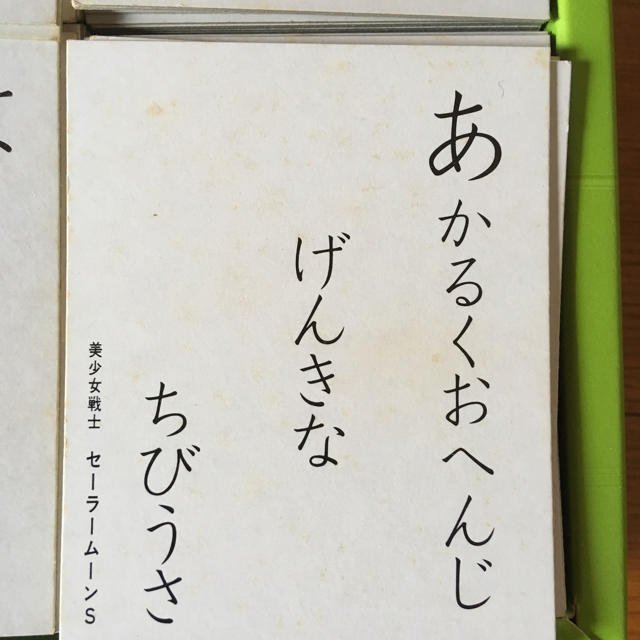 あかるくおへんじ
げんきな
ちびうさ
美少女戦士 セーラームーンS